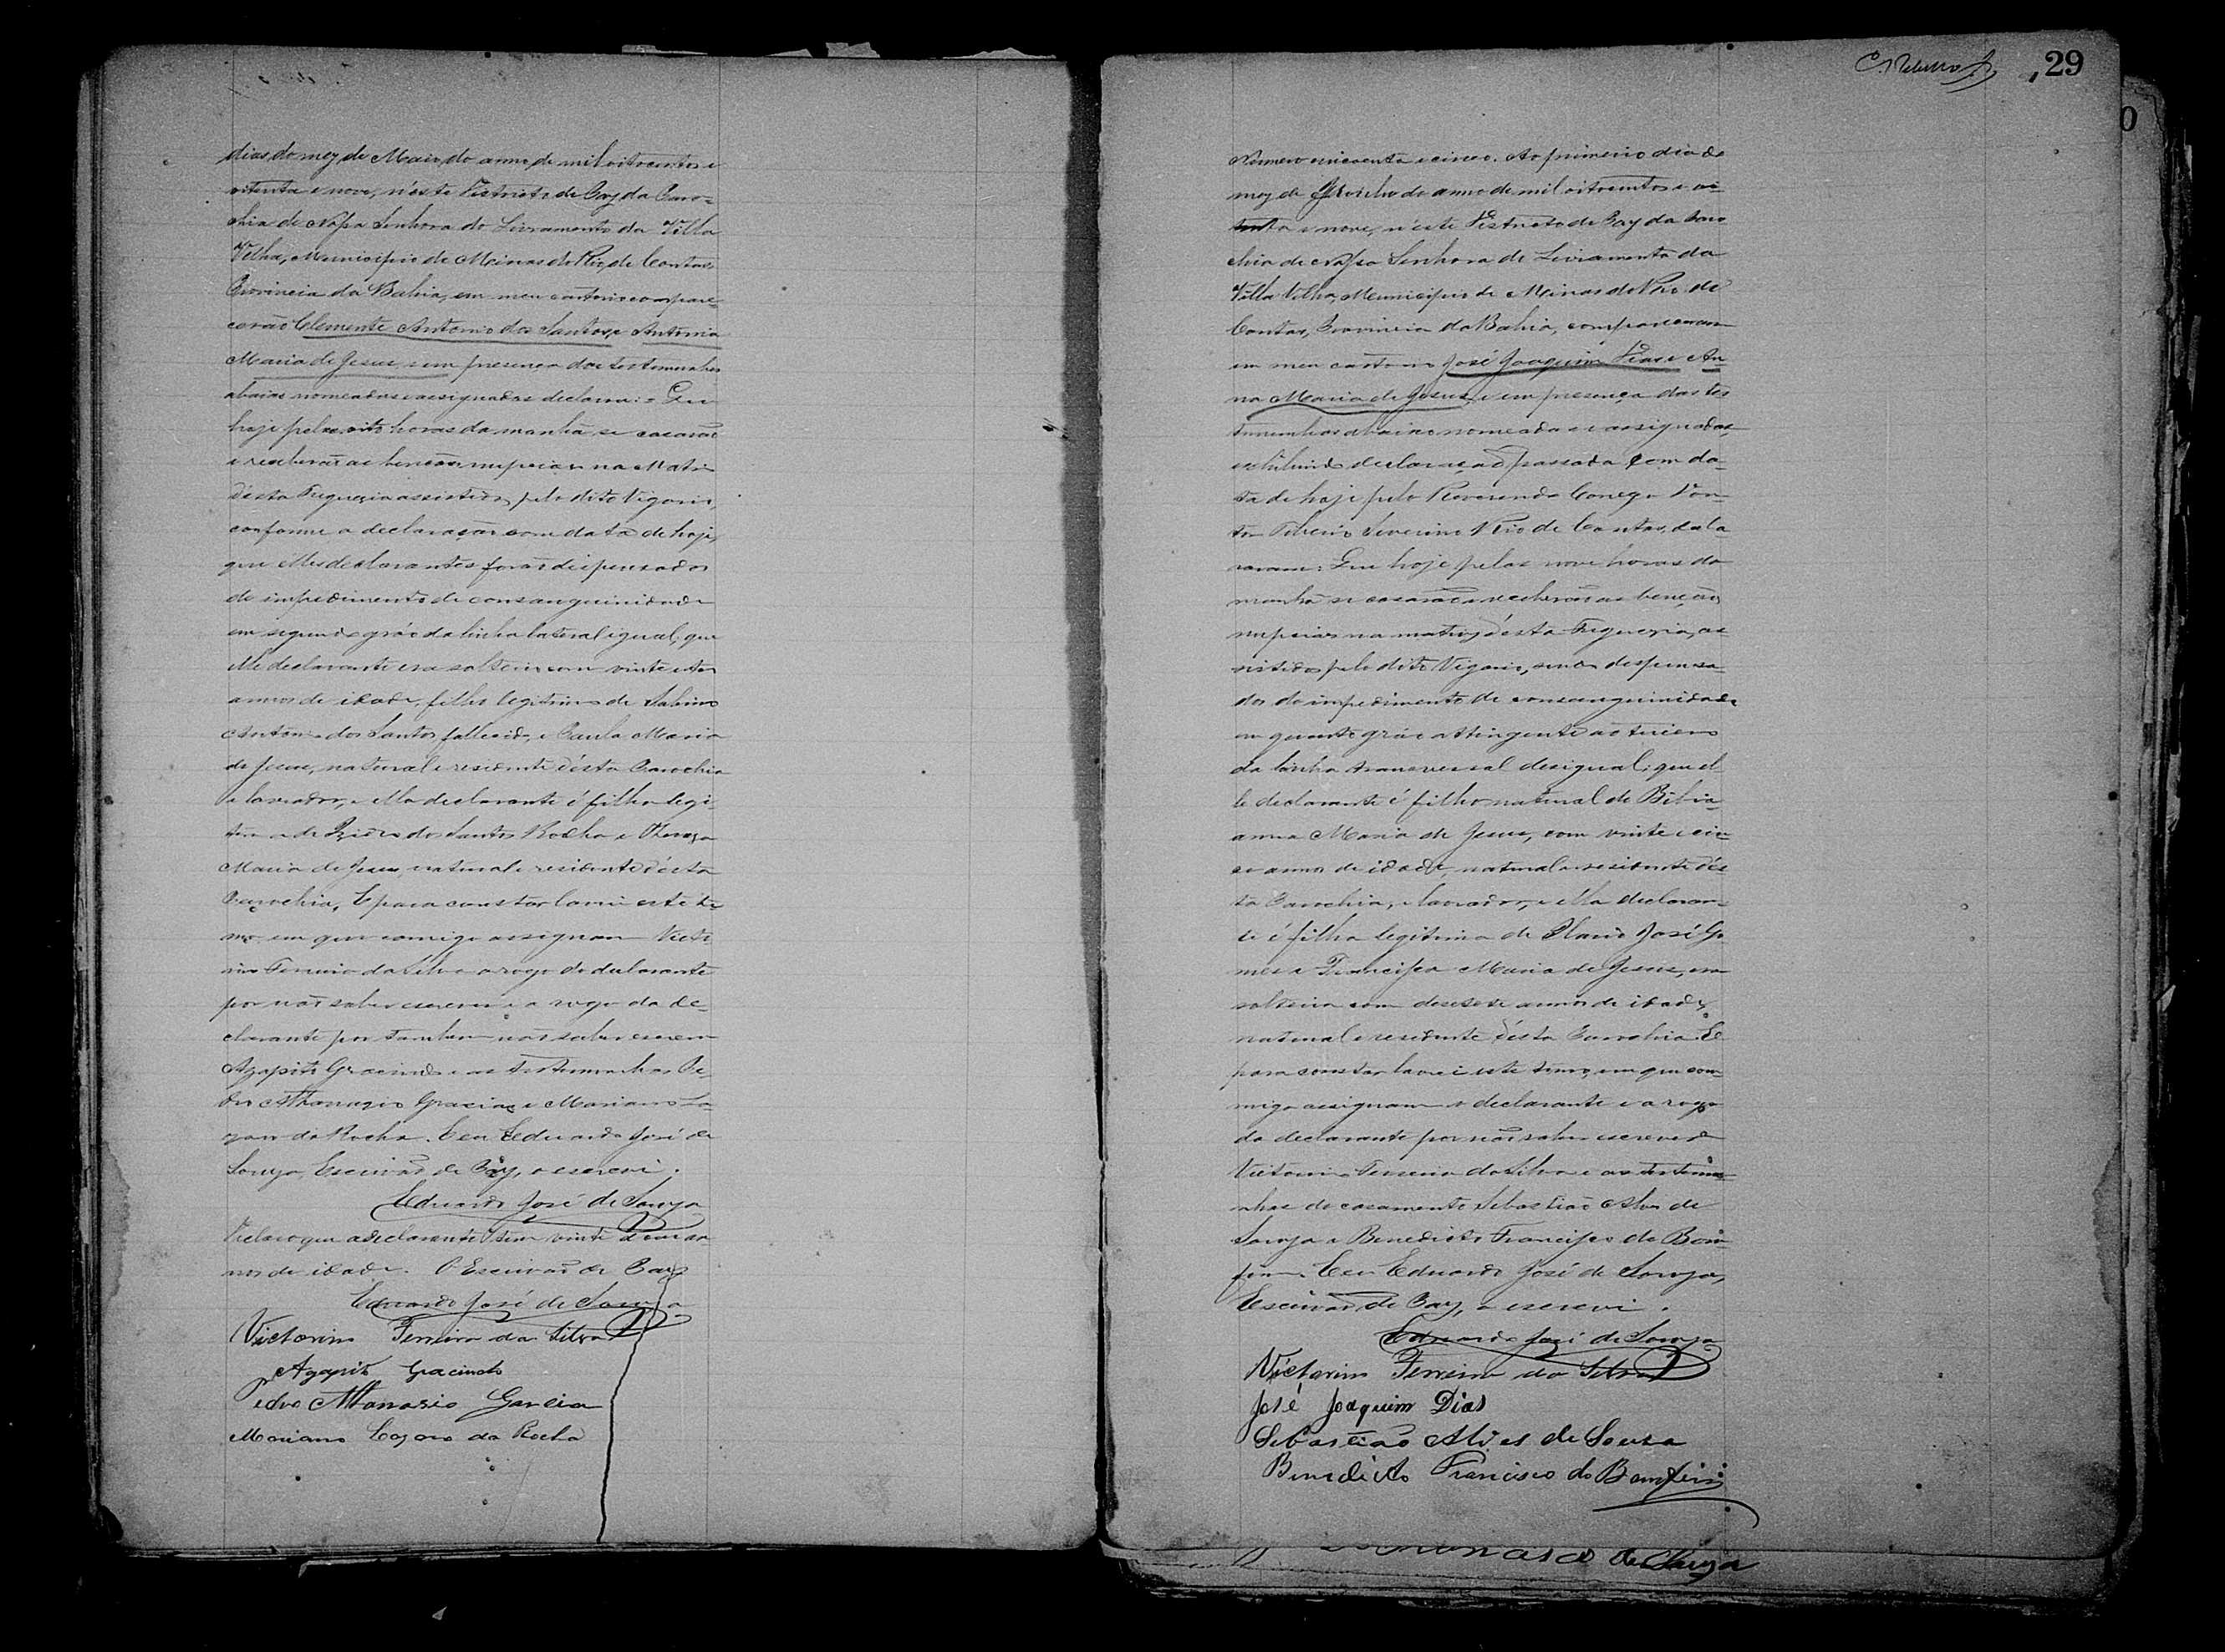 dias do mez de Maio do anno de mil oitocentos e
oitenta e nove, n'este Districto de Paz da Paro-
chia de Nossa Senhora do Livramento da Villa
Velha, Municipio de Minas do Rio de Contas
Provincia da Bahia, em meu cartorio compare-
cerão Clemente Antonio dos Santos, e Antonia
Maria de Jesus, e em presença das testemunhas
abaixo nomeadas e assignadas declaram: Que
hoje pelas oito horas da manhã se casarão
e receberão as bençãos nupciaes na Matriz
d'esta Freguezia assistidos pelo dito Vigario,
conforme a declaração com data de hoje,
que elles declarantes forão dispensados
do impedimento de consanguinidade
em segundo gráo da linha lateral igual; que
elle declarante era solteiro com vinte e
annos de idade, filho legitimo de Sabino
Antonio dos Santos fallecido, e Paula Maria
de Jesus, natural e residente d'esta Parochia
e lavrador, e ella declarante é filha legi
tima de Izidro dos Santos Rocha e Thereza
Maria de Jesus, natural e residente d'esta
Parochia, E para constar lavrei este ter
mo em que comigo assignam Victo
rino Ferreira da Silva a rogo do declarante
por não saber escrever e a rogo da de-
clarante por tambem não saber escrever
Agapito Gracindo e as testemunhas Pe-
dro Athanazio Gracia e Mariano La-
zaro da Rocha. E eu Eduardo José de
Souza, Escrivão de Paz, o escrevi.
Eduardo José de Souza
Declaro que a declarante tem vinte e um an-
nos de idade. O Escrivão de Paz
Eduardo José de Souza
Victorino Ferreira da Silva
Agapito Gracindo
Pedro Athanasio Garcia
Mariano Lazaro da Rocha
29
Numero cincoenta e cinco. Ao primeiro dia do
mez de Junho do anno de mil oitocentos e oi-
tenta e nove, n'este Districto de Paz da Paro
chia de Nossa Senhora do Livramento da
Villa Velha, Municipio de Minas do Rio de
Contas, Provincia da Bahia, compareceram
em meu cartorio José Joaquim Dias e An-
na Maria de Jesus, e em presença das tes
temunhas abaixo nomeadas e assignadas,
exhibindo declaração passada com da-
ta de hoje pelo Reverendo Conego Dou-
tor Tiberio Severino Rio de Contas, decla
raram: Que hoje pelas nove horas da
manhã se casarão e receberão as bençãos
nupciaes na matriz d'esta Freguezia, as
sistidos pelo dito Vigario, sendo dispensa-
dos do impedimento de consanguinidade
em quarto gráo attingente ao terceiro
da linha transversal desigual; que el-
le declarante é filho natural de Bibia-
anna Maria de Jesus, com vinte e cin-
co annos de idade, natural e residente d'es
ta Parochia, e lavrador, e ella declaran-
te é filha legitima de Placio José Go
mes e Francisca Maria de Jesus, era
solteira com desesete annos de idade,
natural e residente d'esta Parochia. E
para constar lavrei este termo, em que com-
migo assignam o declarante e a rogo
da declarante por não saber escrever
Victorino Ferreira da Silva e as testemu-
nhas do casamento Sebastião Alves de
Souza e Benedicto Francisco do Bom-
fim. E eu Eduardo José de Souza,
Escrivão de Paz, o escrevi.
Eduardo José de Souza
Victorino Ferreira da Silva
José Joaquim Dias
Sebastião Alves de Sousa
Benedicto Francisco do Bomfim
de Souza